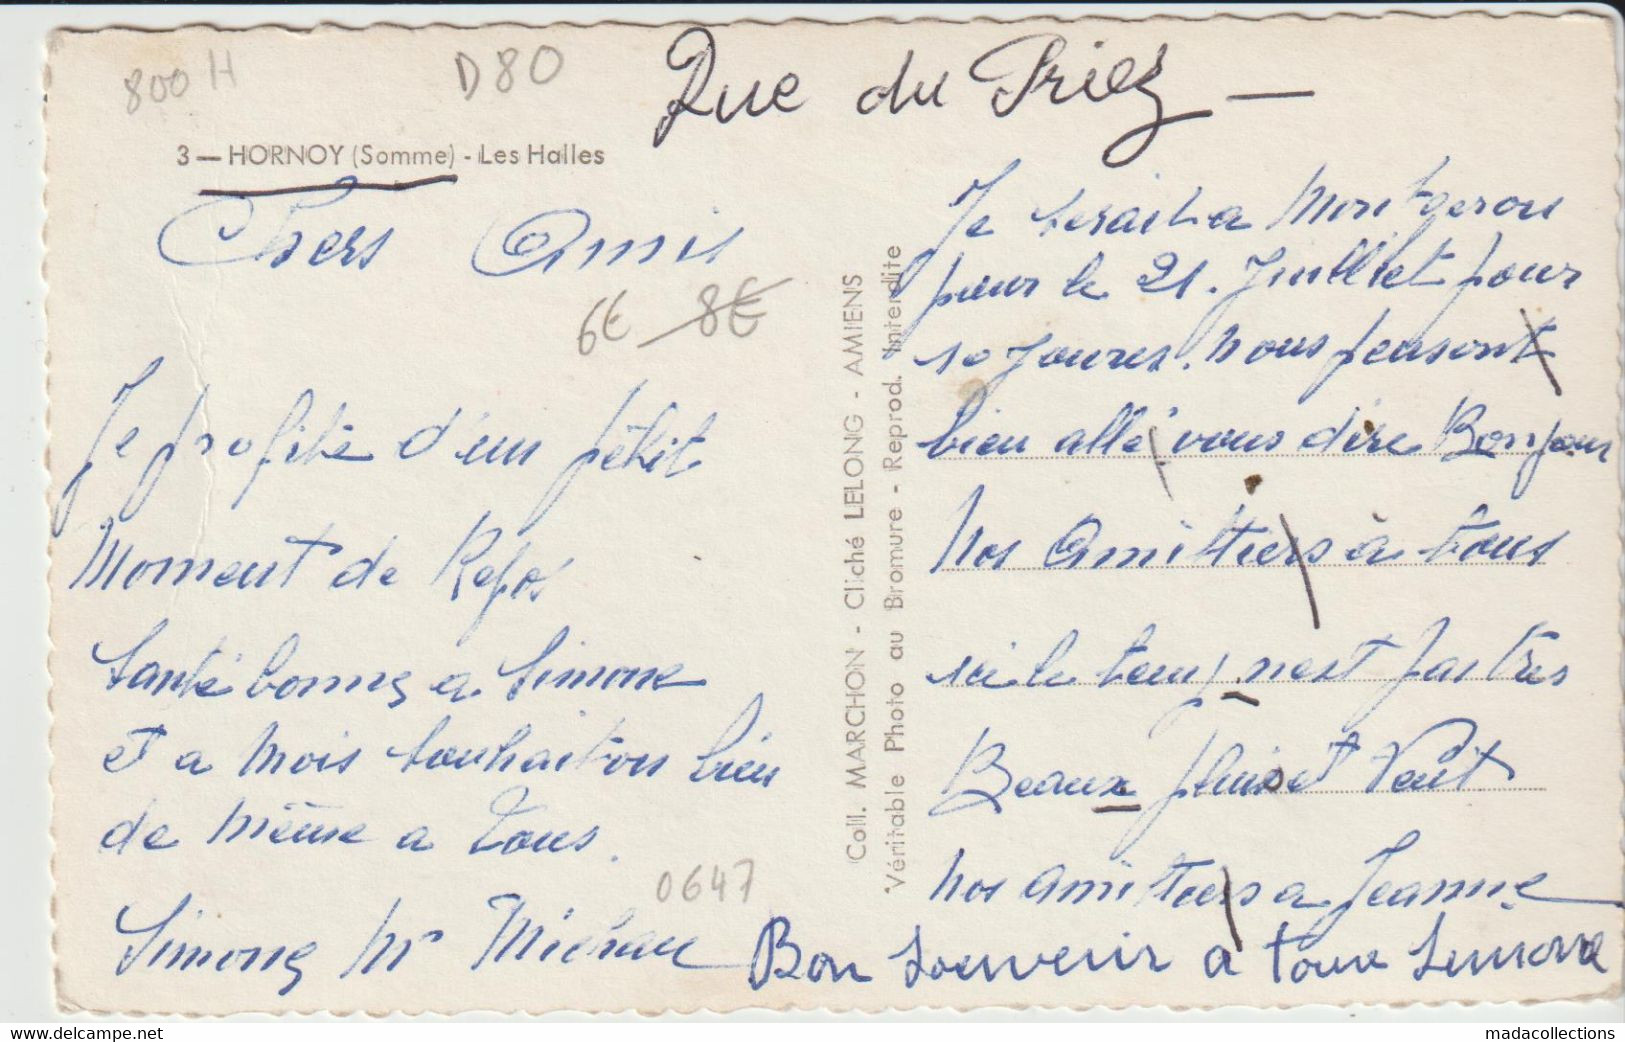 800 H
D80
Rue du Priez —
3 — HORNOY (Somme) - Les Halles
Chers Amis
6€ 8€
Je profite d'un petit
Moment de Repos
Santé bonne a Simone
et a Mois Souhaiton bien
de même a Tous.
0647
Simone Mr Michau
Coll. MARCHON - Cliché LELONG - AMIENS
Véritable Photo au Bromure - Reprod. Interdite
Je serait a Montgeron
pour le 21. Juillet pour
10 Joures. Nous pensont
bien allé vous dire Bonjour
Nos Amitiers à tous
ici le temp nest pas tres
Beaux pluie et Vent
Nos amitiers a Jeanne
Bon Souvenir a tous Simone
www.delcampe.net
madacollections